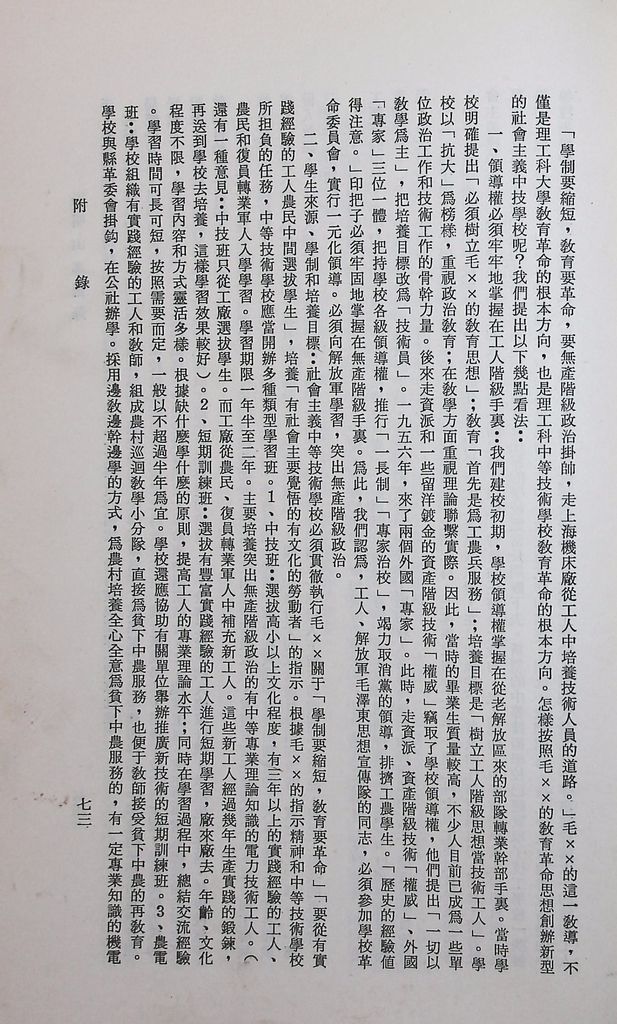 「學制要縮短，敎育要革命，要無產階級政治掛帥，走上海機床廠從工人中培養技術人員的道路。」毛××的這一敎導，不
僅是理工科大學敎育革命的根本方向，也是理工科中等技術學校敎育革命的根本方向。怎樣按照毛××的敎育革命思想創辦新型
的社會主義中技學校呢？我們提出以下幾點看法：
一、領導權必須牢牢地掌握在工人階級手裏：我們建校初期，學校領導權掌握在從老解放區來的部隊轉業幹部手裏。當時學
校明確提出「必須樹立毛××的敎育思想」；敎育「首先是爲工農兵服務」；培養目標是「樹立工人階級思想當技術工人」。學
校以「抗大」爲榜樣，重視政治敎育；在敎學方面重視理論聯繫實際。因此，當時的畢業生質量較高，不少人目前已成爲一些單
位政治工作和技術工作的骨幹力量。後來走資派和一些留洋鍍金的資產階級技術「權威」竊取了學校領導權，他們提出「一切以
敎學爲主」，把培養目標改爲「技術員」。一九五六年，來了兩個外國「專家」。此時，走資派、資產階級技術「權威」、外國
「專家」三位一體，把持學校各級領導權，推行「一長制」「專家治校」，竭力取消黨的領導，排擠工農學生。「歷史的經驗值
得注意。」印把子必須牢固地掌握在無產階級手裏。爲此，我們認爲，工人、解放軍毛澤東思想宣傳隊的同志，必須參加學校革
命委員會，實行一元化領導。必須向解放軍學習，突出無產階級政治。
二、學生來源、學制和培養目標：社會主義中等技術學校必須貫徹執行毛××關于「學制要縮短，敎育要革命」「要從有實
踐經驗的工人農民中間選拔學生」，培養「有社會主要覺悟的有文化的勞動者」的指示。根據毛××的指示精神和中等技術學校
所担負的任務，中等技術學校應當開辦多種類型學習班。1、中技班：選拔高小以上文化程度，有三年以上的實踐經驗的工人、
農民和復員轉業軍人入學學習。學習期限一年半至二年。主要培養突出無產階級政治的有中等專業理論知識的電力技術工人。（
還有一種意見：中技班只從工廠選拔學生。而工廠從農民、復員轉業軍人中補充新工人。這些新工人經過幾年生產實踐的鍛鍊，
再送到學校去培養，這樣學習效果較好）。2、短期訓練班：選拔有豐富實踐經驗的工人進行短期學習，廠來廠去。年齡、文化
程度不限，學習內容和方式靈活多樣。根據缺什麼學什麼的原則，提高工人的專業理論水平；同時在學習過程中，總結交流經驗
。學習時間可長可短，按照需要而定，一般以不超過半年爲宜。學校還應協助有關單位舉辦推廣新技術的短期訓練班。3、農電
班：學校組織有實踐經驗的工人和敎師，組成農村巡迴敎學小分隊，直接爲貧下中農服務，也便于敎師接受貧下中農的再敎育。
學校與縣革委會掛鈎，在公社辦學。採用邊敎邊幹邊學的方式，爲農村培養全心全意爲貧下中農服務的，有一定專業知識的機電
附 錄
七三